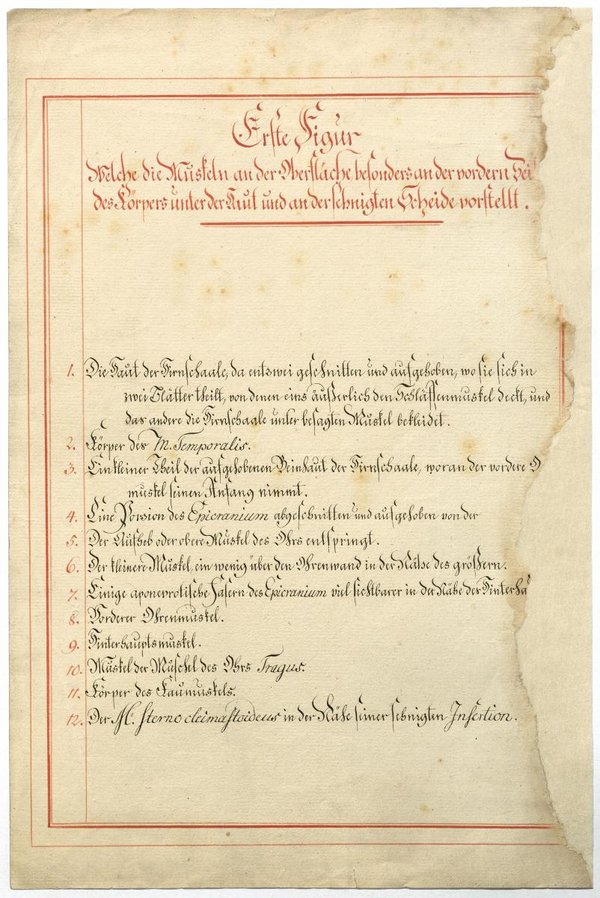 Erste Figur
Welche die Muskeln an der Oberfläche besonders an der vordern Sei
des Körpers unter der Haut und an der sehnigten Scheide vorstellt.
1. Die Haut der Hirnschaale, da entzwei geschnitten und aufgehoben, wo sie sich in
zwei Blätter theilt, von denen eins äußerlich den Schläffenmuskel deckt, und
das andere die Hirnschaale unter besagten Muskel bekleidet.
2. Körper des M. Temporalis.
3. Ein kleiner Theil der aufgehobenen Beinhaut der Hirnschaale, woran der vordere O
muskel seinen Anfang nimmt.
4. Eine Porzion des Epicranium abgeschnitten und aufgehoben von der
5. Der Aufheb oder obere Muskel des Ohrs entspringt.
6. Der kleinere Muskel, ein wenig über den Ohrenwand in der Nähe des größern.
7. Einige aponevrotische Fasern des Epicranium viel sichtbarer in der Nähe der Hinterha
8. Vorderer Ohrenmuskel.
9. Hinterhauptsmuskel.
10. Muskel der Muschel des Ohrs Tragus.
11. Körper des Kaumuskels.
12. Der M. Sterno cleimastoideus in der Nähe seiner sehnigten Insertion.